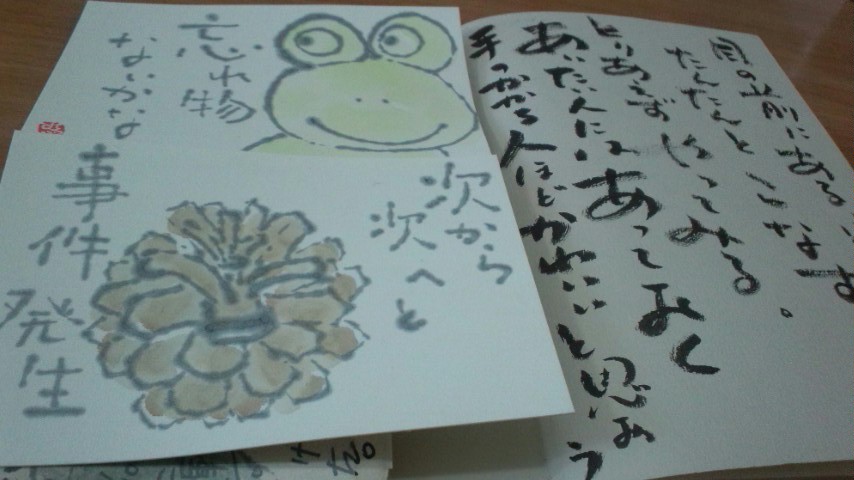 忘れ物
ないかな
次から
次へと
事件
発生
目の前にある
たんたんと こなす
とりあえず やってみる。
あいたい人には あっておく
手のかかる人ほどかわいいと思おう